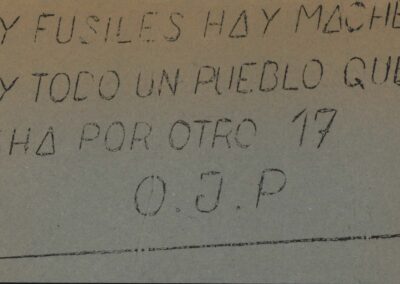 Y FUSILES HAY MACHE
Y TODO UN PUEBLO QUE
HA POR OTRO 17
O.J.P